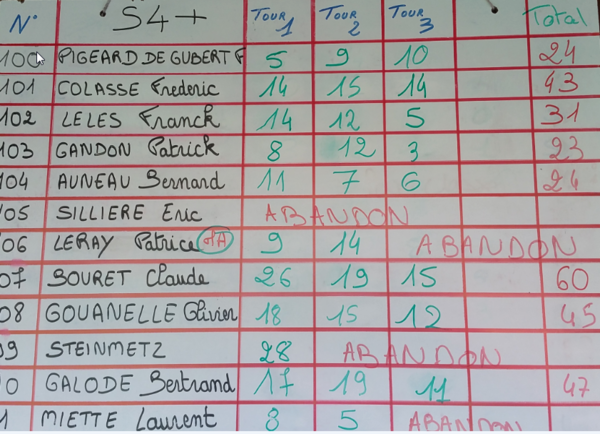 N° S4+ TOUR 1 TOUR 2 TOUR 3 Total
100 PIGEARD DE GUBERT F 5 9 10 24
101 COLASSE Frederic 14 15 14 43
102 LELES Franck 14 12 5 31
103 GANDON Patrick 8 12 3 23
104 AUNEAU Bernard 11 7 6 24
05 SILLIERE Eric ABANDON
06 LERAY Patrice 9 14 ABANDON
07 BOURET Claude 26 19 15 60
08 GOUANELLE Olivier 18 15 12 45
09 STEINMETZ 28 ABANDON
0 GALODE Bertrand 17 19 11 47
1 MIETTE Laurent 8 5 ABANDON